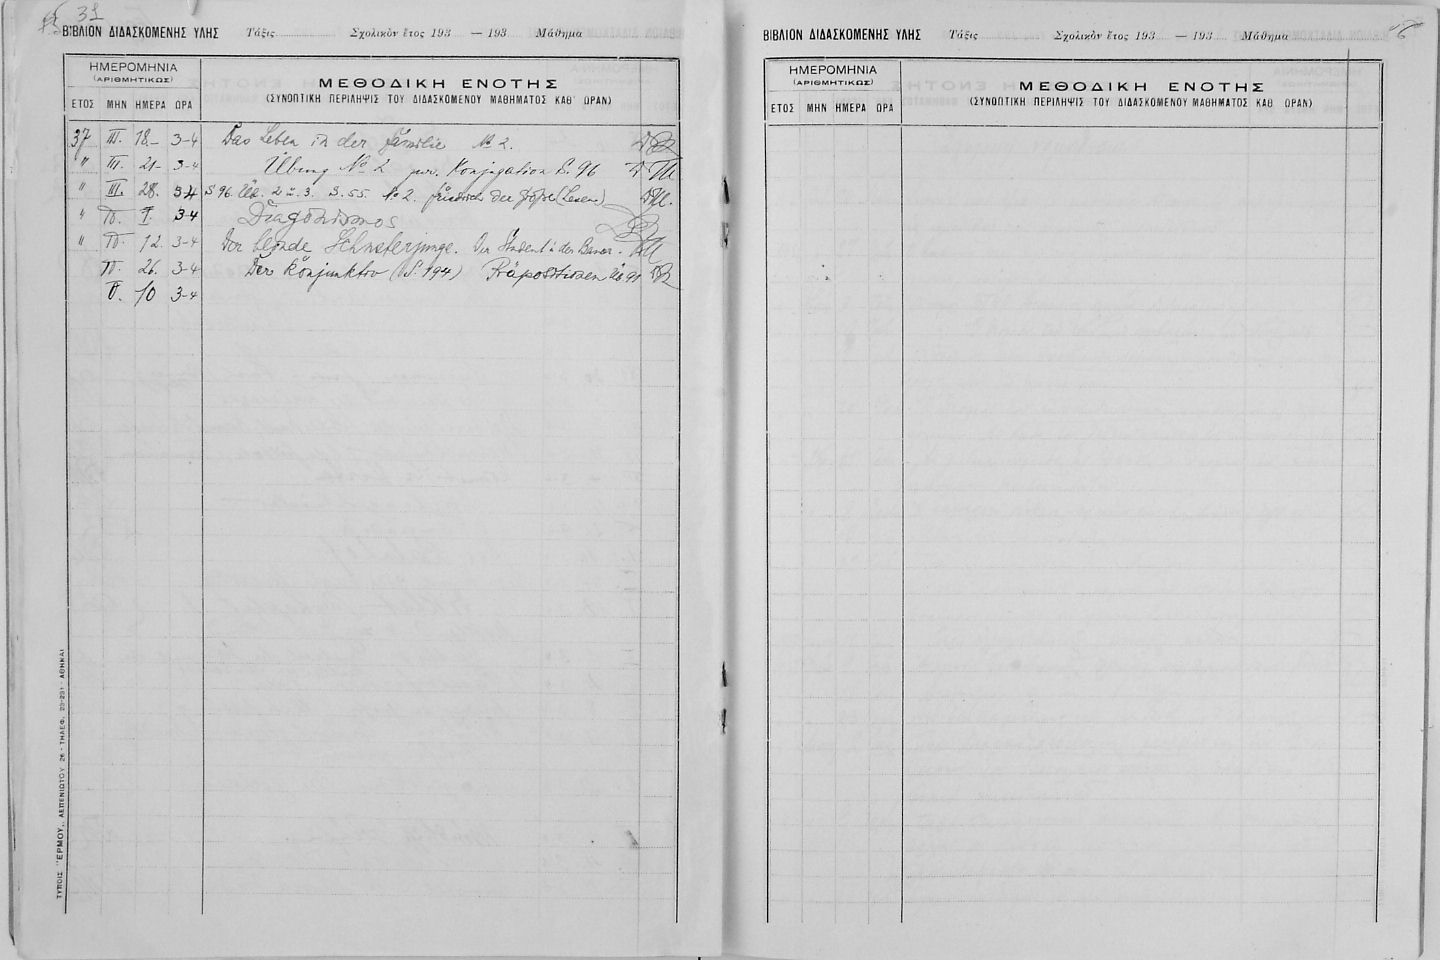 31
ΒΙΒΛΙΟΝ ΔΙΔΑΣΚΟΜΕΝΗΣ ΥΛΗΣ Τάξις Σχολικὸν ἔτος 193 — 193 Μάθημα
ΗΜΕΡΟΜΗΝΙΑ
(ΑΡΙΘΜΗΤΙΚΩΣ)
ΜΕΘΟΔΙΚΗ ΕΝΟΤΗΣ
(ΣΥΝΟΠΤΙΚΗ ΠΕΡΙΛΗΨΙΣ ΤΟΥ ΔΙΔΑΣΚΟΜΕΝΟΥ ΜΑΘΗΜΑΤΟΣ ΚΑΘ' ΩΡΑΝ)
ΕΤΟΣ ΜΗΝ ΗΜΕΡΑ ΩΡΑ
37 III. 18.- 3-4 Das Leben in der Familie No 2.
" III. 21- 3-4 Übung No 2 Konjugation S. 96
" III. 28. 3-4 S 96. Üb. 2 u. 3. S. 55. No 2. Friedrich der (Lesen)
" 3-4 Diagonismos
" IV. 12. 3-4 Der blonde Schusterjunge. Der Student u der Bauer.
IV. 26. 3-4 Der Konjunktiv (S. 194) Präpositionen
V. 10 3-4
ΤΥΠΟΙΣ "ΕΡΜΟΥ„ ΛΕΠΕΝΙΩΤΟΥ 26 - ΤΗΛΕΦ. 23-231 - ΑΘΗΝΑΙ
ΒΙΒΛΙΟΝ ΔΙΔΑΣΚΟΜΕΝΗΣ ΥΛΗΣ Τάξις Σχολικὸν ἔτος 193 — 193 Μάθημα
ΗΜΕΡΟΜΗΝΙΑ
(ΑΡΙΘΜΗΤΙΚΩΣ)
ΜΕΘΟΔΙΚΗ ΕΝΟΤΗΣ
(ΣΥΝΟΠΤΙΚΗ ΠΕΡΙΛΗΨΙΣ ΤΟΥ ΔΙΔΑΣΚΟΜΕΝΟΥ ΜΑΘΗΜΑΤΟΣ ΚΑΘ. ΩΡΑΝ)
ΕΤΟΣ ΜΗΝ ΗΜΕΡΑ ΩΡΑ